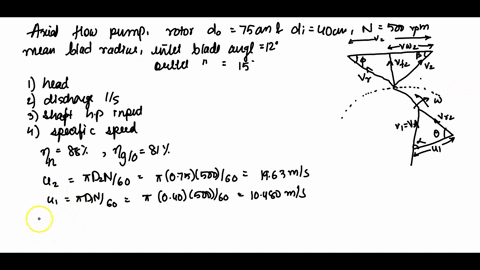 Axial flow pump, rotor do = 75 cm & di = 40 cm, N = 500 rpm
mean blad radius, inlet blade angl = 12°
outlet " = 15°
1) head
2) discharge l/s
3) shaft hp input
4) specific speed
ηh = 88%, ηg/o = 81%
u2 = πD2N/60 = π(0.75)(500)/60 = 19.63 m/s
u1 = πD1N/60 = π (0.40)(500)/60 = 10.480 m/s
Vw2
β
V2
Vr
ω
Vr2
θ
u1